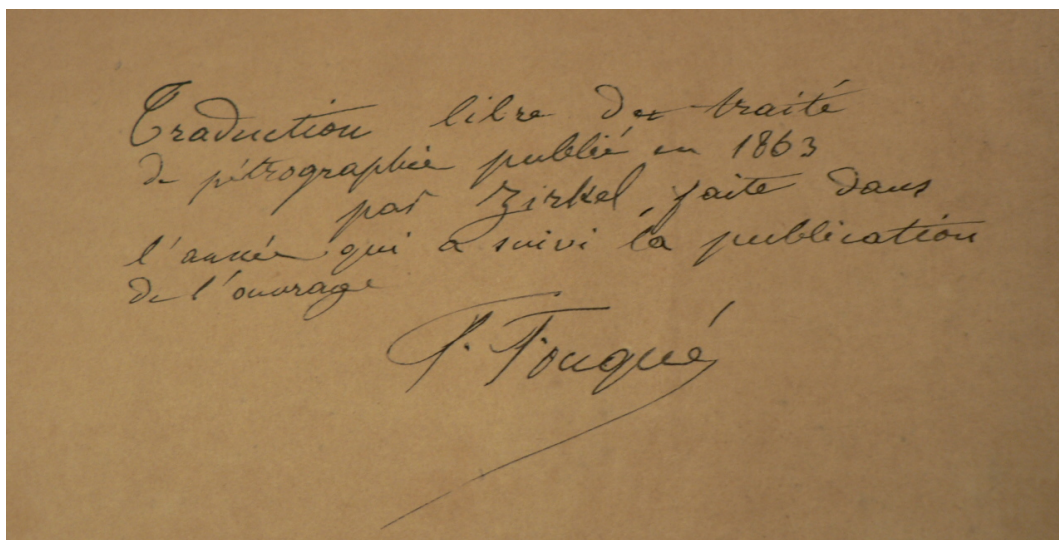 Traduction libre du traité
de pétrographie publié en 1863
par Zirkel, faite dans
l'année qui a suivi la publication
de l'ouvrage
F. Fouqué